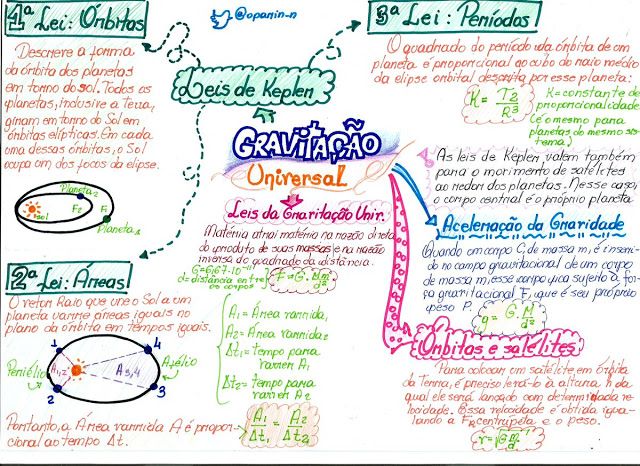 1ª Lei: Órbitas
Descreve a forma
da órbita dos planetas
em torno do sol. Todos os
planetas, inclusive a Terra,
giram em torno do Sol em
órbitas elípticas. Em cada
uma dessas órbitas, o Sol
ocupa um dos focos da elipse.
Planeta 2
Sol
F2
F1
Planeta 1
2ª Lei: Áreas
O vetor Raio que une o Sol a um
planeta varre áreas iguais no
plano da órbita em tempos iguais.
1
4
Periélio
A1,2
A3,4
Afélio
2
3
Portanto, a Área varrida A é propor-
cional ao tempo Δt.
@opanin-n
Leis de Kepler
GRAVITAÇÃO
Universal
Leis da Gravitação Univ.
Matéria atrai matéria na razão direta
do produto de suas massas e na razão
inversa do quadrado da distância.
G=6,67·10⁻¹¹
d=distância entre
os corpos
F=G.Mm/d²
A1=Área varrida1
A2=Área varrida2
Δt1=Tempo para
varrer A1
Δt2=Tempo para
varrer A2
A1/Δt1 = A2/Δt2
3ª Lei: Períodos
O quadrado do período da órbita de um
planeta é proporcional ao cubo do raio médio
da elipse orbital descrita por esse planeta:
K=T2/R3
K=constante de
proporcionalidade
(é o mesmo para
planetas do mesmo sis-
tema)
As leis de Kepler, valem também
para o movimento de satélites
ao redor dos planetas. Nesse caso,
o corpo central é o próprio planeta
Aceleração da Gravidade
Quando um corpo C de massa m, é inseri-
do no campo gravitacional de um corpo
de massa m, esse corpo fica sujeito à for-
ça gravitacional F, que é seu próprio
peso P.
g=G.M/d²
Órbitas e satélites
Para colocar um satélite em órbita
da Terra, é preciso levá-lo à altura h da
qual ele será lançado com determinada ve-
locidade. Essa velocidade é obtida igua-
lando a F centrípeta e o peso.
v=√GM/d